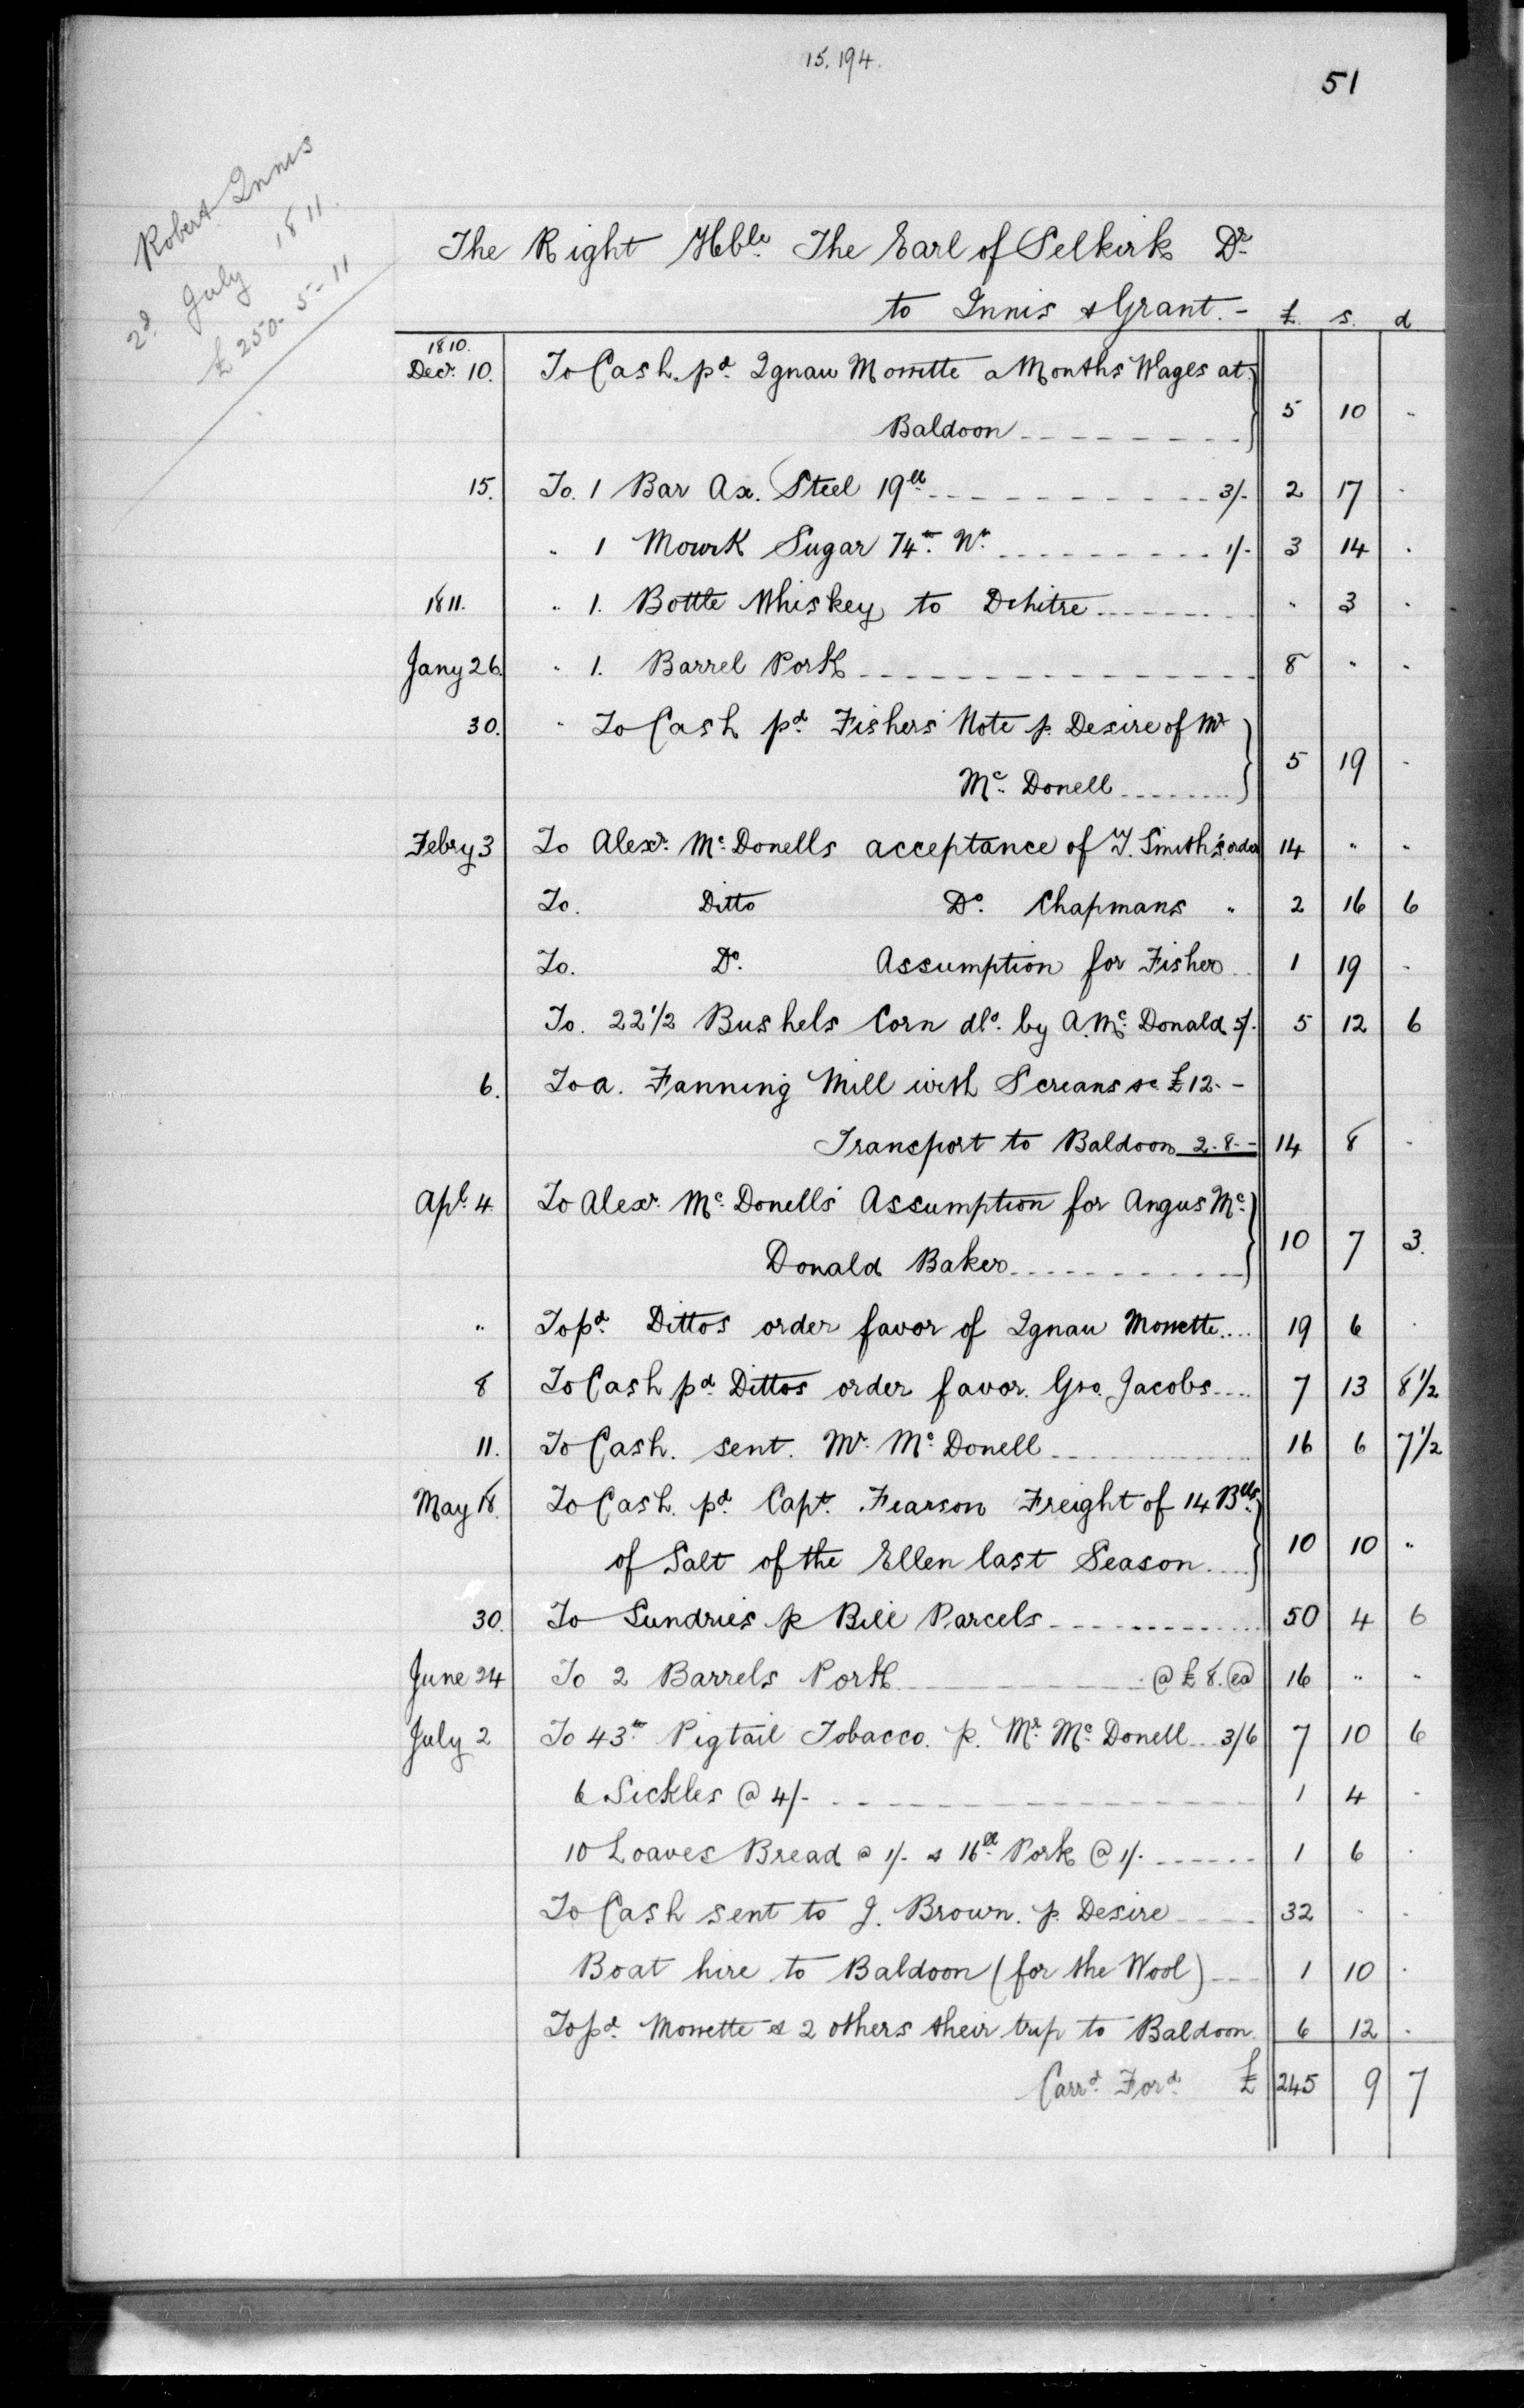 15.194.
51
Robert Innis
2d July 1811.
£250-5-11
The Right Hble. The Earl of Selkirk Dr
to Innis & Grant.- £. s. d
1810.
Decr. 10. To Cash pd. Ignau Monette a Months Wages at
Baldoon 5 10 "
15. To. 1 Bar Ax. Steel 19lb 3/- 2 17 "
" 1 Mowk Sugar 74lb. Nt. 1/- 3 14 "
1811. " 1. Bottle Whiskey to Dehitre " 3 "
Jany 26. " 1. Barrel Pork 8 " "
30. " To Cash pd. Fishers Note p. Desire of Mr
Mc. Donell 5 19 "
Febry 3 To Alexr. Mc. Donells acceptance of T. Smith's order 14 " "
To. Ditto Do. Chapmans " 2 16 6
To. Do. Assumption for Fisher 1 19 "
To. 22 1/2 Bushels Corn dld. by A. Mc. Donald 5/- 5 12 6
6. To a. Fanning Mill with Screans &c £12.-
Transport to Baldoon 2.8.- 14 8 "
Apl. 4. To Alexr. Mc. Donells Assumption for Angus Mc.
Donald Baker 10 7 3.
" To pd. Dittos order favor of Ignau Monette 19 6 "
8 To Cash pd. Dittos order favor. Geo. Jacobs 7 13 8 1/2
11. To Cash. sent. Mr. Mc. Donell 16 6 7 1/2
May 18. To Cash. pd. Capt. Fearson Freight of 14 Blls.
of Salt of the Ellen last Season 10 10 "
30. To Sundries p Bill Parcels 50 4 6
June 24 To 2 Barrels Pork @ £8. ea 16 " "
July 2 To 43lb. Pigtail Tobacco. p. Mr. Mc. Donell 3/6 7 10 6
6 Sickles @ 4/- 1 4 "
10 Loaves Bread @ 1/- & 16lb. Pork @ 1/- 1 6 "
To Cash sent to J. Brown. p. Desire 32 " "
Boat hire to Baldoon (for the Wool) 1 10 "
To pd. Monette & 2 others their trip to Baldoon. 6 12 "
Carrd. Ford. £ 245 9 7